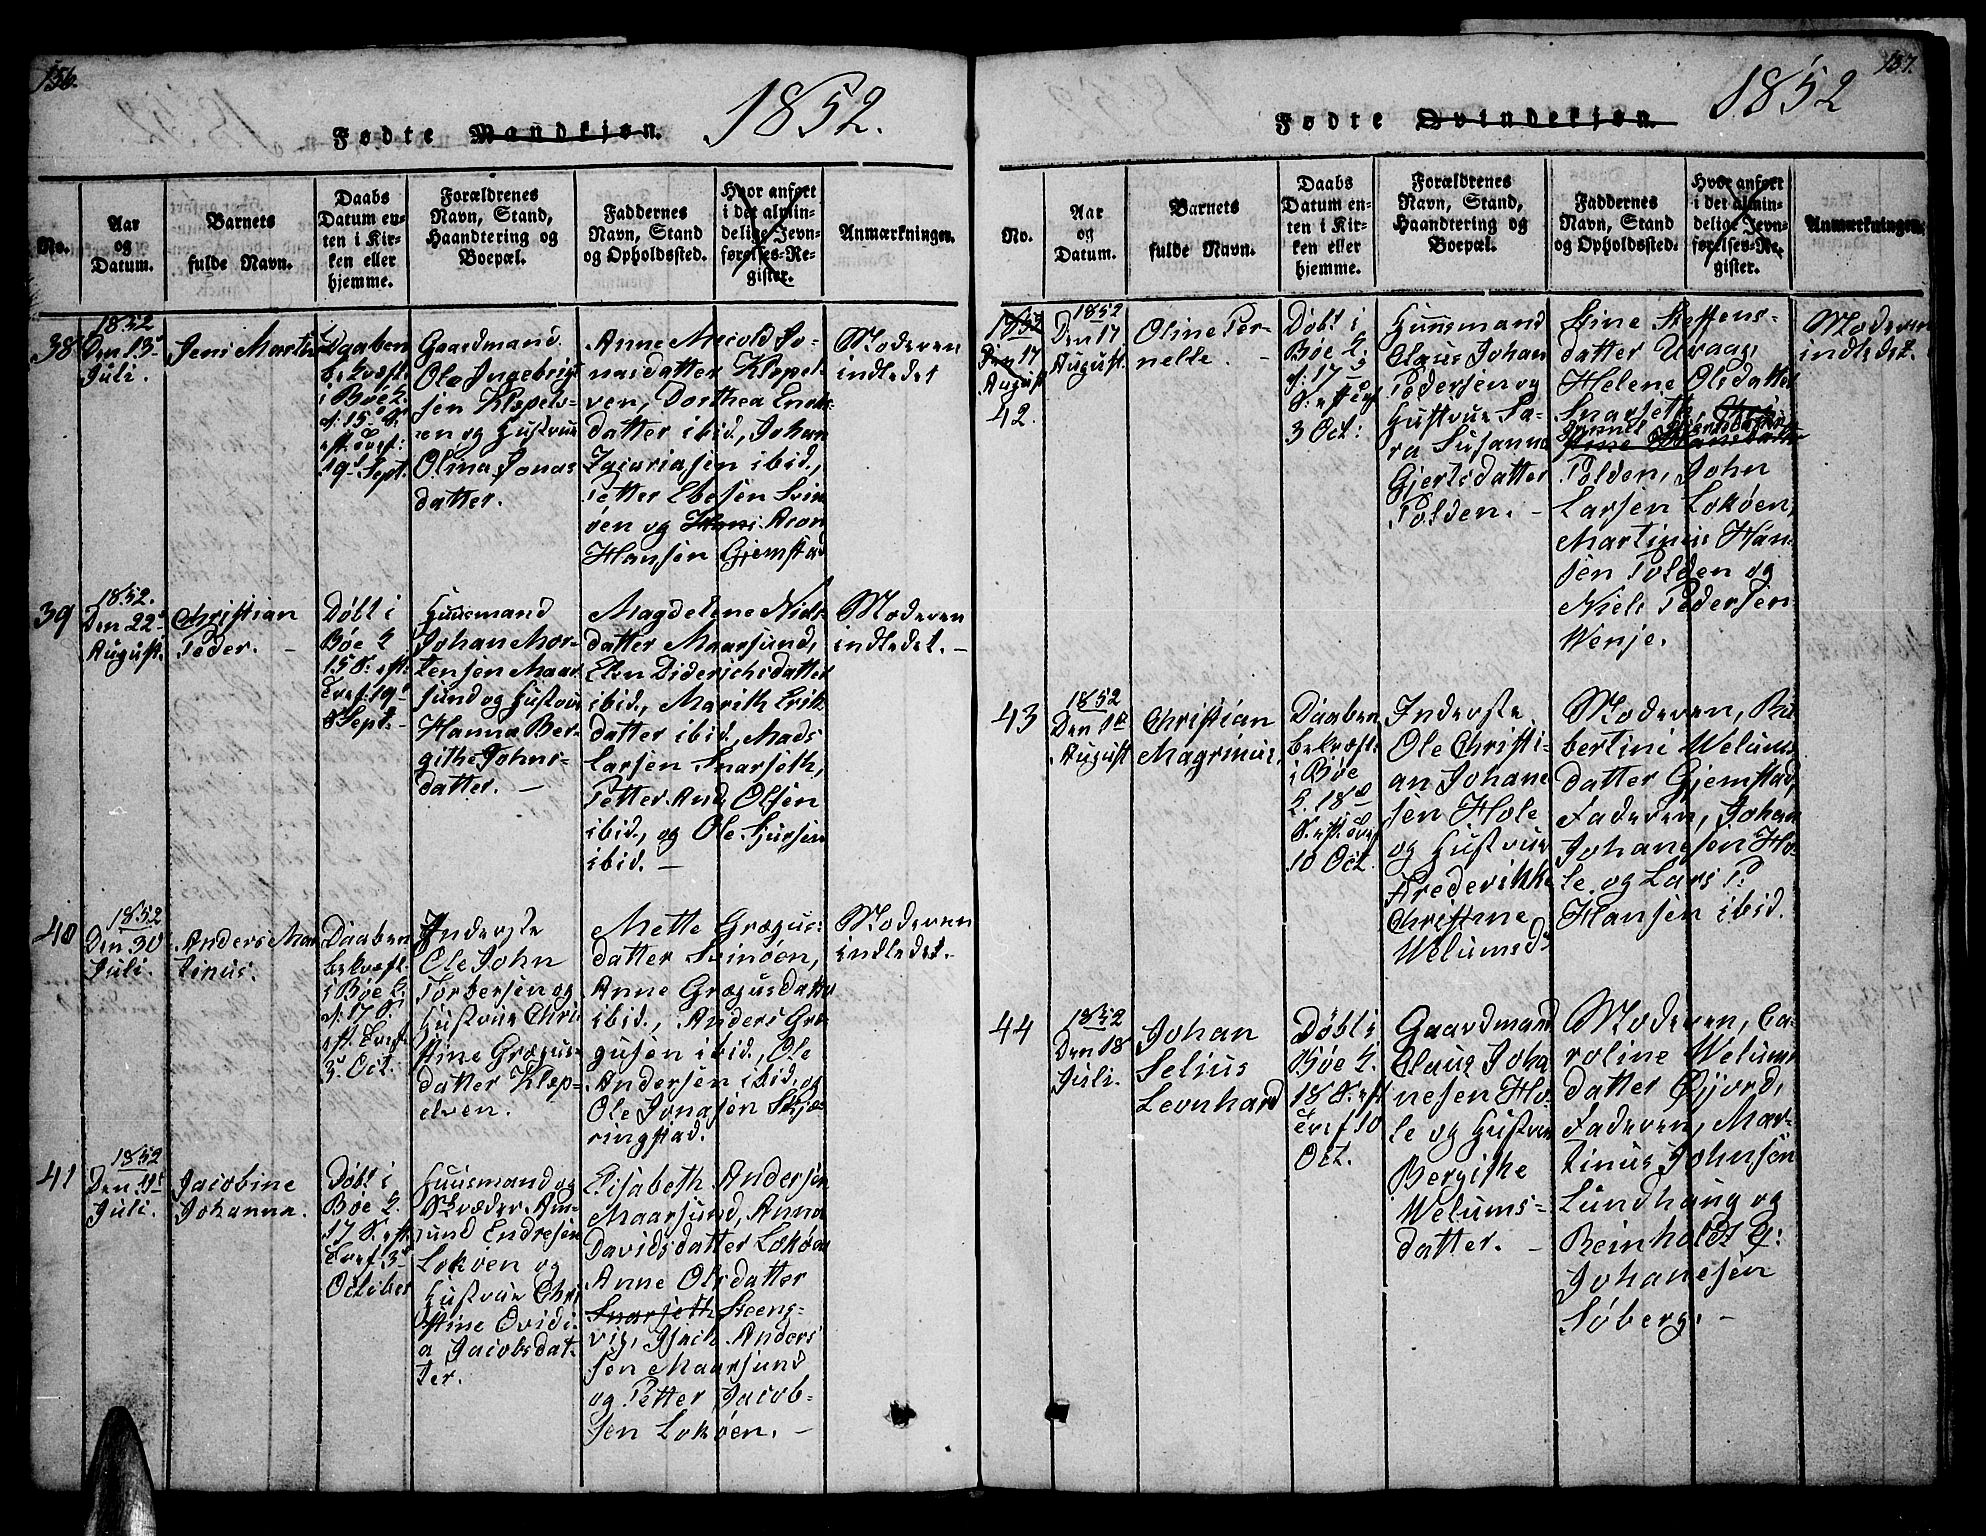 156.
Fødte Mandkjøn. 1852.
No.
Aar
og
Datum.
Barnets
fulde Navn.
Daabs
Datum en-
ten i Kir-
ken eller
hjemme.
Forældrenes
Navn, Stand,
Haandtering og
Boepæl.
Faddernes
Navn, Stand
og Opholdssted.
Hvor anført
i det almin-
delige Jevn-
førelses-Re-
gister.
Anmærkninger.
38
1852
Den 13
Juli.
Jens Martin
Daaben
bekræft
i Bøe K.
d. 15 S.
eft Tref:
19 Sept.
Gaardmand
Ole Ingebrigt
sen Klepels-
en og Hustrue
Olina Jonas
datter.
Anne Mevold Jo-
nasdatter Klepel
ven, Dorthea Ends
datter ibid, Johan
Zacariasen ibid,
Petter Ebesen Svin
øen og Hans Aron
Hansen Gjemstad
Moderen
indledet
39
1852.
Den 22
August.
Christian
Peder. -
Døbt i
Bøe K
15 S. eft.
Tref: 19
Sept. -
Huusmand
Johan Mor-
tensen Maar
sund og Hustrue
Hanna Ber-
githe Johns-
datter. -
Magdelene Niels
datter Maarsund,
Elen Diderichsdatter
ibid, Marith Erik
datter ibid, Mads
Larsen Snarseth,
Petter And. Olsen
ibid, og Ole Sjursen
ibid. -
Moderen
indledet. -
40
1852
Den 30
Juli.
Anders Mar
tinus.
Daaben
bekræft.
i Bøe K.
d. 17 S.
eft. Tref.
3 Oct.
Inderste
Ole John
Torbersen og
Hustrue Chri
stine Grægus
datter Klep-
elven.
Mette Grægus-
datter Svinøen,
Anne Grægusdatte
ibid, Anders Gre
gusen ibid, Ole
Andersen ibid, og
Ole Jonasen Skjæ
ringstad.
Moderen
indledet.
41
1852
Den 19
Juli.
Jacobine
Johanna.
Døbt i
Bøe K.
17 S. eft.
Tref. 3
October
Huusmand og
Skræder Am-
und Endresen
Lokøen og
Hustrue Chri
stine Ovidi-
a Jacobsdat-
ter.
Elisabeth Andersen
Maarsund, Anna
Davidsdatter Lokøen
Anne Olsdatter
Snarseth Steens-
vig, Isach Anders
sen Maarsund
og Petter Jacob-
sen Lokøen. -
157.
Fødte Qvindekjøn. 1852
No.
Aar
og
Datum.
Barnets
fulde Navn.
Daabs
Datum en-
ten i Kir-
ken eller
hjemme.
Forældrenes
Navn, Stand,
Haandtering og
Boepæl.
Faddernes
Navn, Stand
og Opholdssted.
Hvor anført
i det almin-
delige Jevn-
førelses-Re-
gister.
Anmærkninger.
1852
Den 17
August
42.
1852
Den 17
August.
Oline Per-
nelle. -
Døbt i
Bøe K.
d: 17
S. eft Tref
3 Oct:
Huusmand
Claus Johan
Pedersen og
Hustrue Sa-
ra Susanna
Gjertsdatter
Polden. -
Stine Steffens-
datter Uvaag,
Helene Olsdatter
Snarseth,
Polden, John
Larsen Lokøen,
Martinus Han-
sen Polden og
Niels Pedersen
Wenje.
Moderen
indledet.
43
1852
Den 1
August
Christian
Magrinus.
Daaben
bekræft.
i Bøe
K. 18
S. eft. Tref
10 Oct.
Inderste
Ole Christi-
an Johane
sen Hole
og Hustrue
Frederikke
Christine
Welumsd
Moderen, Ru
bertini Welums
datter Gjemstad,
Faderen, Johan
Johanesen Ho-
le og Lars P.
Hansen ibid.
44
1852
Den 18
Juli.
Johan
Selius
Leonhard
Døbt i
Bøe K.
18 S. eft
Tref 10
Oct.
Gaardmand
Claus Joha
nesen Ho-
le og Hustrue
Bergithe
Welums-
datter. -
Moderen, Ca-
roline Welums
datter Gjord,
Faderen, Mar-
tinus Johnsen
Lundhaug og
Reinholdt C:
Johanesen
Søberg. -